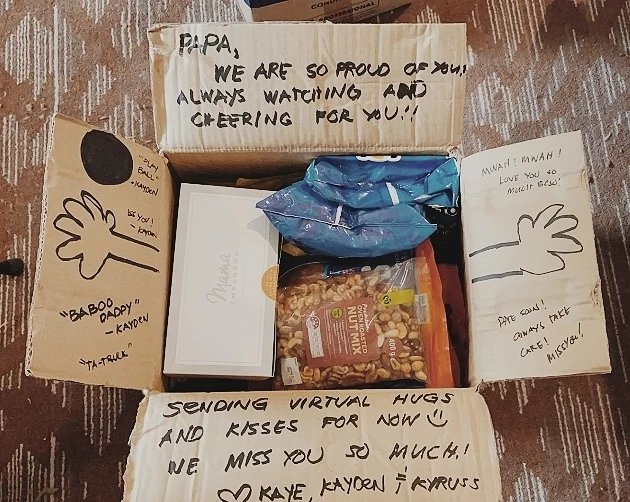 PAPA,
WE ARE SO PROUD OF YOU!
ALWAYS WATCHING AND
CHEERING FOR YOU!!
"PLAY
BALL"
-KAYDEN
MISS YOU!
- KAYDEN
"BABOO
DADDY"
- KAYDEN
"TA-TRUCK"
MWAH! MWAH!
LOVE YOU SO
MUCH
DATE SOON!
ALWAYS TAKE
CARE!
MISS YOU!
Mama
EMPANADA
OVEN ROASTED
NUT MIX
400g
PROFESSIONAL
SENDING VIRTUAL HUGS
AND KISSES FOR NOW
WE MISS YOU SO MUCH!
KAYE, KAYDEN & KYRUSS